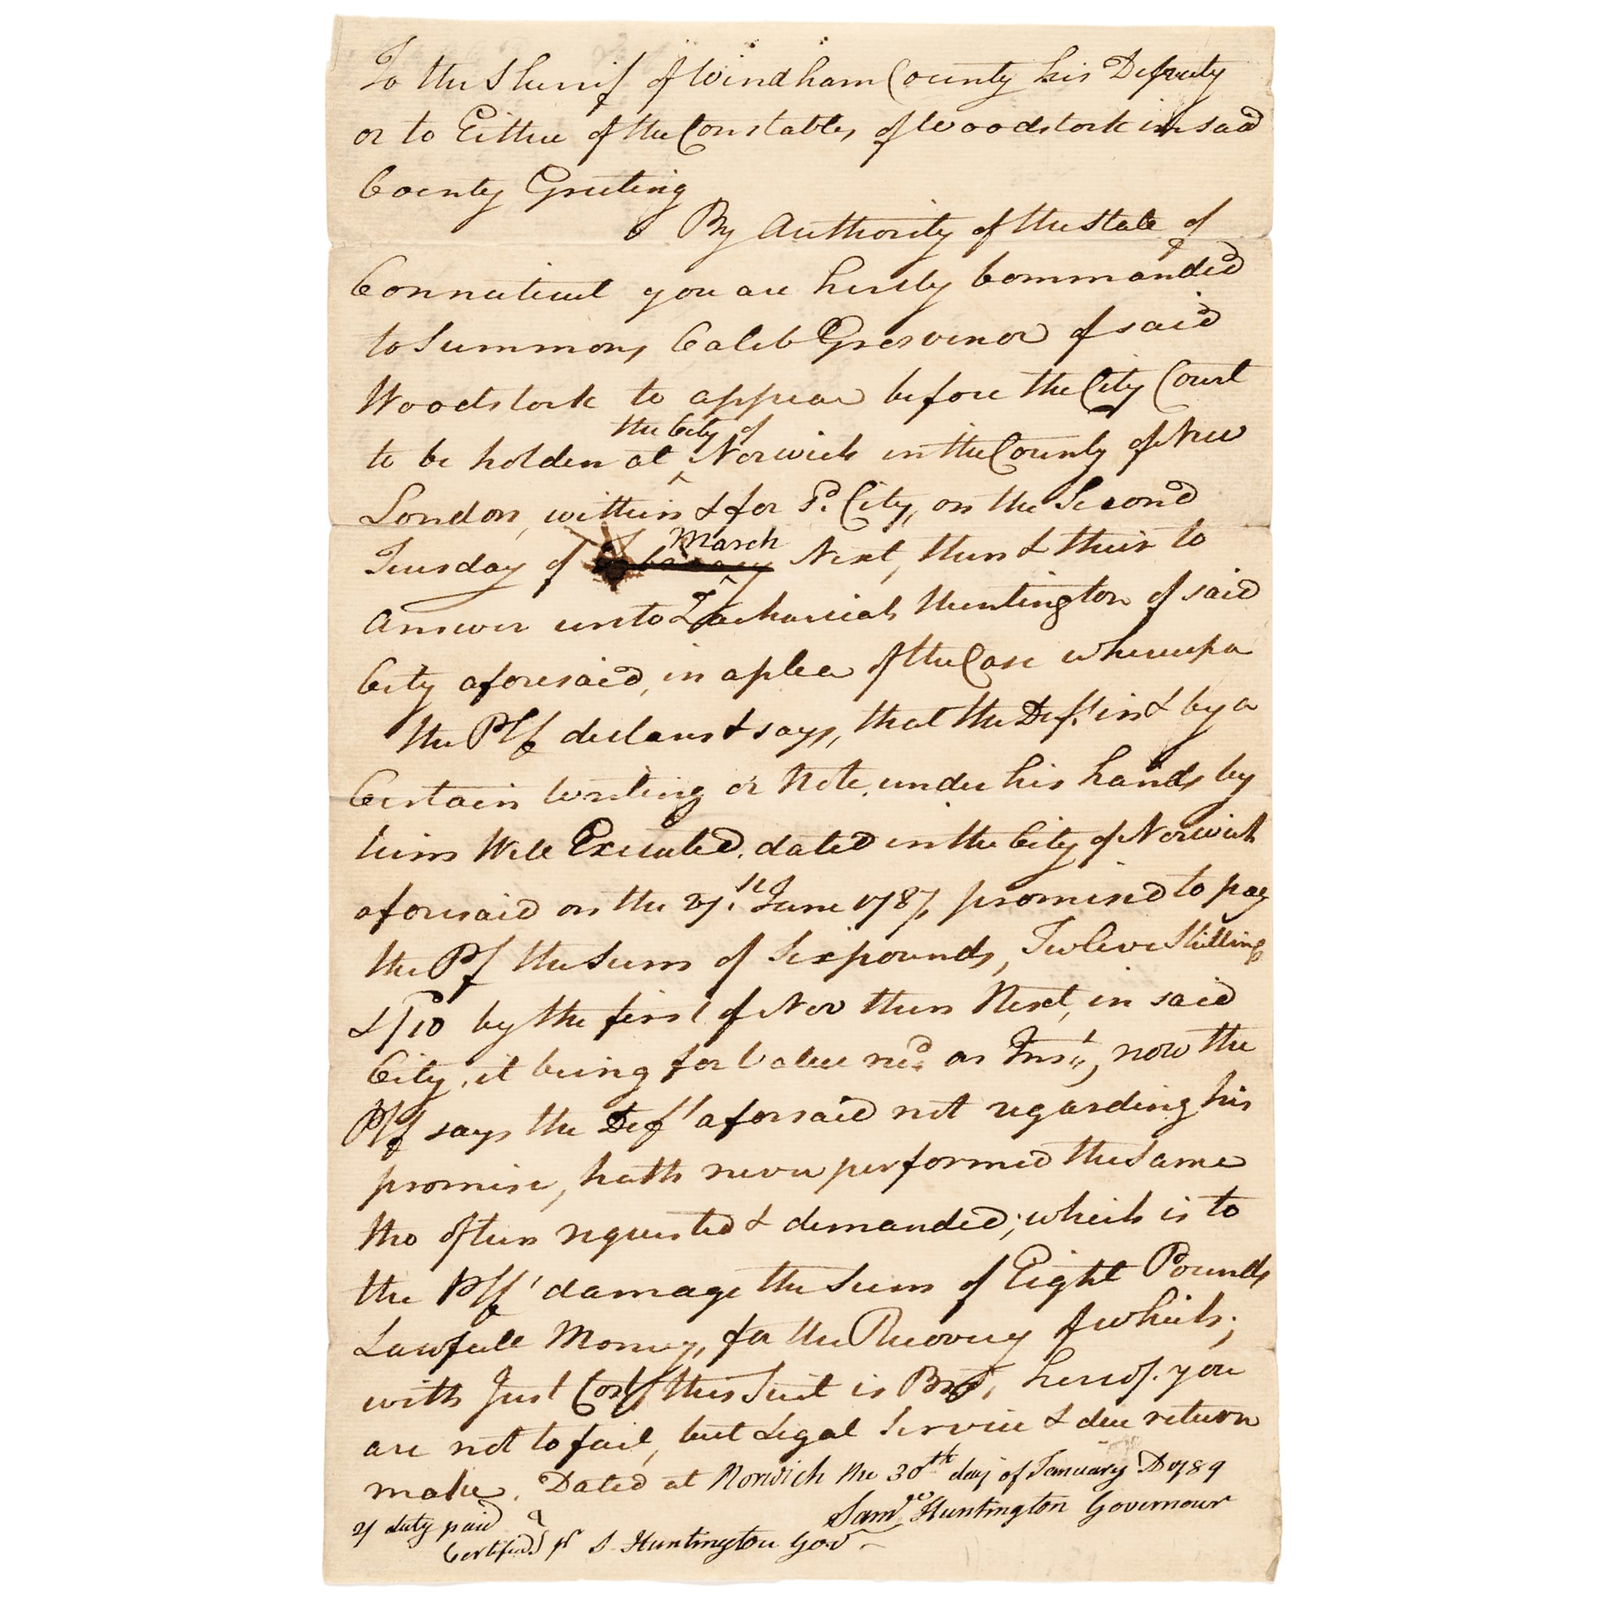 To the Sherrif of Windham County his Deputy
or to Either of the Constables of Woodstock in said
County Greeting
By Authority of the State of
Connecticut you are hereby Commanded
to Summons Caleb Grosvenor of said
Woodstock to appear before the City Court
the City of
to be holden at ^ Norwich in the County of New
London, within & for sd. City, on the Second
March
Tuesday of Next, then & their to
Answer unto Zachariah Huntington of said
City aforesaid, in a plea of the Case whereupn
the Plf declares & says, that the Deft. in & by a
Certain writing or Note under his hands by
him Well Executed, dated in the City of Norwich
aforesaid on the 21st. June 1787, promised to pay
the Plf the Sum of Six pounds, Twelve Shillings
& /10 by the first of Nov then Next, in said
City, it being for Value recd. as Inst., now the
Plf says the Deft aforsaid not regarding his
promise, hath never performed the Same
tho often requested & demanded; which is to
the Plf' damage the Sum of Eight Pounds
Lawfull Money, for the Recovery of which;
with Just Cost of this Suit is Brot, hereof. you
are not to fail, but Legal Service & due return
make. Dated at Norwich the 30th day of January AD 1789
Samel Huntington Governour
2/ duty paid
Certified pr S. Huntington Govr